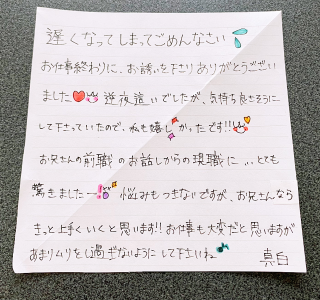 遅くなってしまってごめんなさい
お仕事終わりに、お誘いを下さりありがとうござい
ました 逆夜這いでしたが、気持ち良さそうに
して下さっていたので、私も嬉しかったです!!
お兄さんの前職のお話しからの現職に…とても
驚きましたー! 悩みもつきないですが、お兄さんなら
きっと上手くいくと思います!! お仕事も大変だと思いますが
あまりムリをし過ぎないようにして下さいね♪
真白